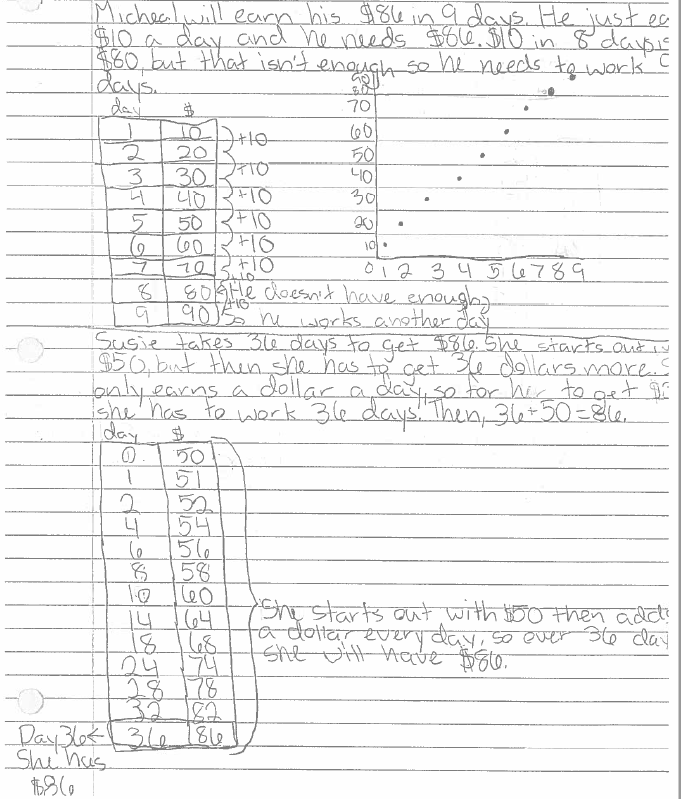 Micheal will earn his $86 in 9 days. He just ea
$10 a day and he needs $86. $10 in 8 days is
$80, but that isn't enough so he needs to work
days.
day $
1 10
2 20
3 30
4 40
5 50
6 60
7 70
8 80
9 90
+10
+10
+10
+10
+10
+10
+10
+10
He doesn't have enough,
so he works another day
90
80
70
60
50
40
30
20
10
0 1 2 3 4 5 6 7 8 9
Susie takes 36 days to get $86. She starts out
$50, but then she has to get 36 dollars more.
only earns a dollar a day, so for her to get
she has to work 36 days. Then, 36+50=86.
day $
0 50
1 51
2 52
4 54
6 56
8 58
10 60
14 64
18 68
24 74
28 78
32 82
36 86
She starts out with $50 then add
a dollar every day, so over 36 day
she will have $86.
Day 36←
She has
$86